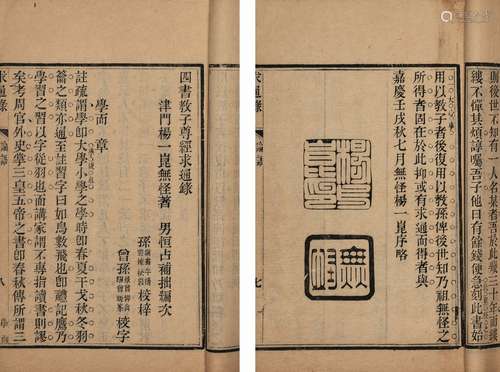 則後世不知有一人名某者吾此
縷不憚其煩諄囑吾子他日有餘錢便急刻此書始
用以教子者後復用以教孫俾後世知乃祖無怪之
所得者固在於此抑或有求通而得者與
嘉慶壬戌秋七月無怪楊一崑序略
無怪
求通錄
七
四書教子尊經求通錄
津門楊一崑無怪著 男恒占補拙編次
孫 校梓
曾孫 校字
學而章
註疏謂學即大學小學之學時即春夏干戈秋冬羽
籥之類亦通至註習字曰如鳥數飛也即禮記鷹乃
學習之習以字從羽也而講家謂不專指讀書則謬
矣考周官外史掌三皇五帝之書即春秋傳所謂三
求通錄 論語
八